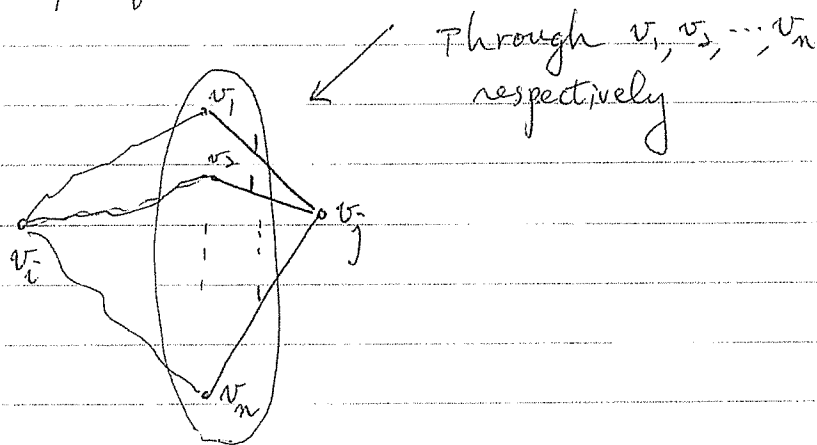 Through v₁, v₂, ..., vₙ
respectively
v₁
v₂
vᵢ
vⱼ
vₙ